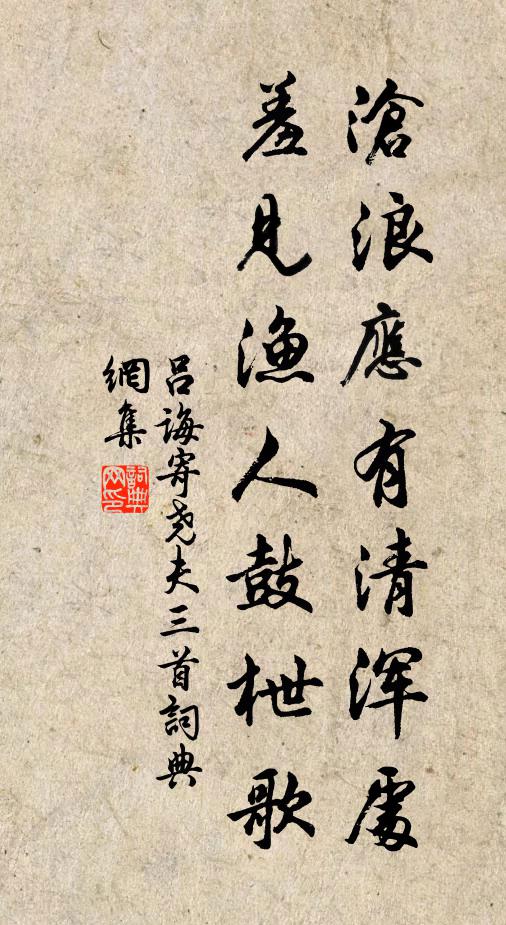 滄浪應有清浑處
羞見漁人鼓枻歌
吕誨寄尧夫三首詞典
網集
詞典網印